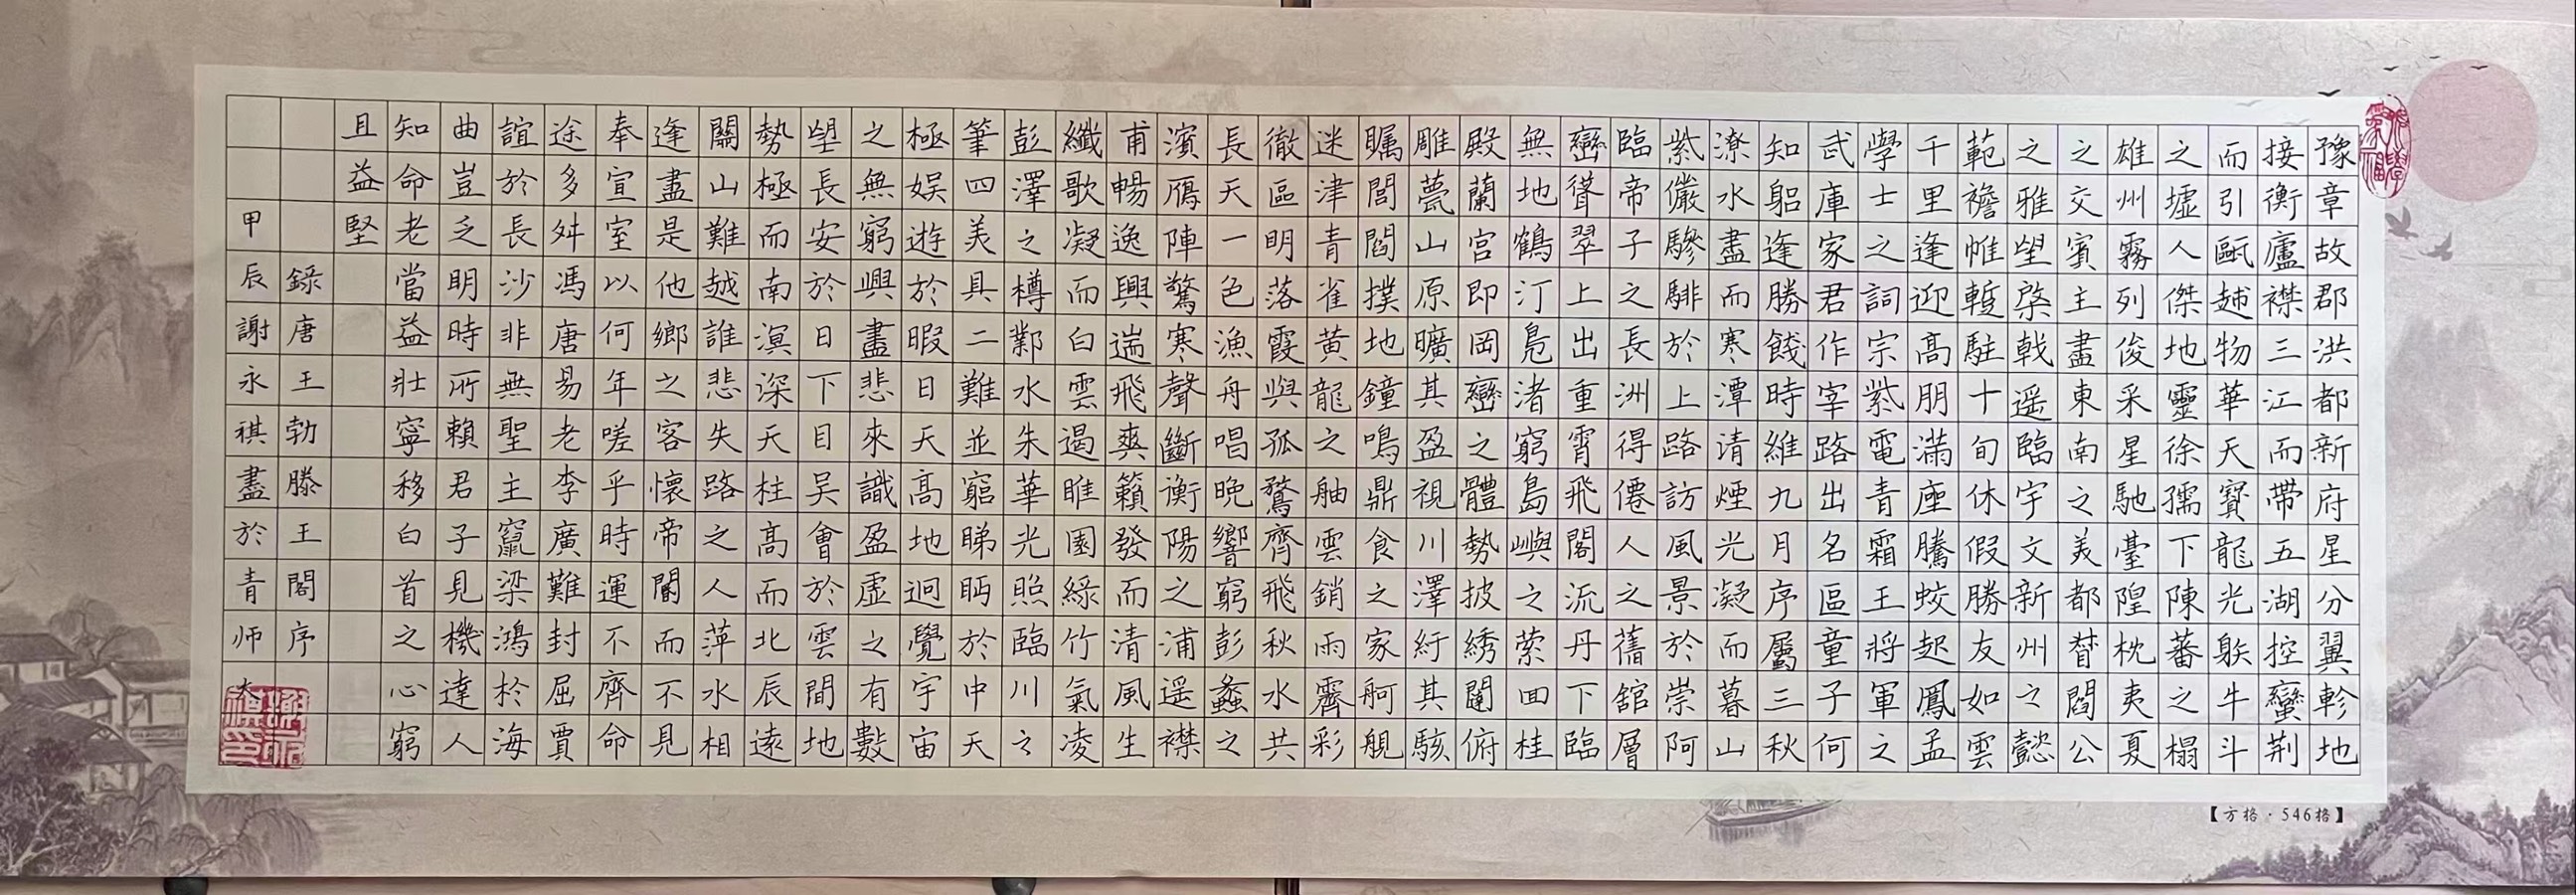 豫章故郡洪都新府星分翼軫地
接衡廬襟三江而帶五湖控蠻荆
而引甌越物華天寶龍光躲牛斗
之墟人傑地靈徐孺下陳蕃之榻
雄州霧列俊采星馳臺隍枕夷夏
之交賓主盡東南之美都督閻公
之雅望棨戟遥臨宇文新州之懿
範襜帷暫駐十旬休假勝友如雲
千里逢迎高朋滿座騰蛟起鳳孟
學士之詞宗紫電青霜王將軍之
武庫家君作宰路出名區童子何
知躬逢勝餞時維九月序屬三秋
潦水盡而寒潭清煙光凝而暮山
紫儼驂騑於上路訪風景於崇阿
臨帝子之長洲得僊人之舊舘層
巒聳翠上出重霄飛閣流丹下臨
無地鶴汀鳧渚窮島嶼之縈回桂
殿蘭宫即岡巒之體勢披綉闥俯
雕甍山原曠其盈視川澤紆其駭
矚閭閻撲地鐘鳴鼎食之家舸艦
迷津青雀黄龍之舳雲銷雨霽彩
徹區明落霞與孤鶩齊飛秋水共
長天一色漁舟唱晚響窮彭蠡之
濱鴈陣驚寒聲斷衡陽之浦遥襟
甫暢逸興遄飛爽籟發而清風生
纖歌凝而白雲遏睢園緑竹氣凌
彭澤之樽鄴水朱華光照臨川之
筆四美具二難並窮睇眄於中天
極娱遊於暇日天高地迥覺宇宙
之無窮興盡悲來識盈虚之有數
望長安於日下目吴會於雲間地
勢極而南溟深天柱高而北辰遠
關山難越誰悲失路之人萍水相
逢盡是他鄉之客懷帝閽而不見
奉宣室以何年嗟乎時運不齊命
途多舛馮唐易老李廣難封屈賈
誼於長沙非無聖主竄梁鴻於海
曲豈乏明時所賴君子見機達人
知命老當益壯寧移白首之心窮
且益堅
録唐王勃滕王閣序
甲辰謝永祺盡於青师大
【方格·546格】